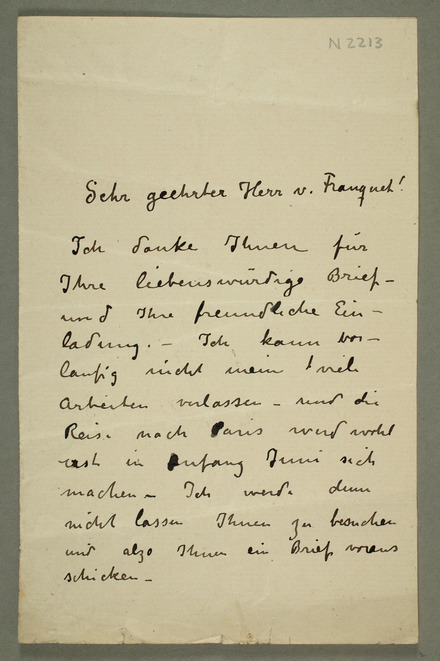 N 2213
Sehr geehrter Herr v. Franquet!
Ich danke Ihnen für
Ihre liebenswürdige Brief –
und Ihre freundliche Ein –
ladung. – Ich kann vor –
laufig nicht mein ! viele
Arbeiten verlassen – und die
Reise nach Paris wird wohl
erst in Anfang Juni sich
machen – Ich werde dann
nicht lassen Ihnen zu besuchen
und also Ihnen ein Brief voraus
schicken –